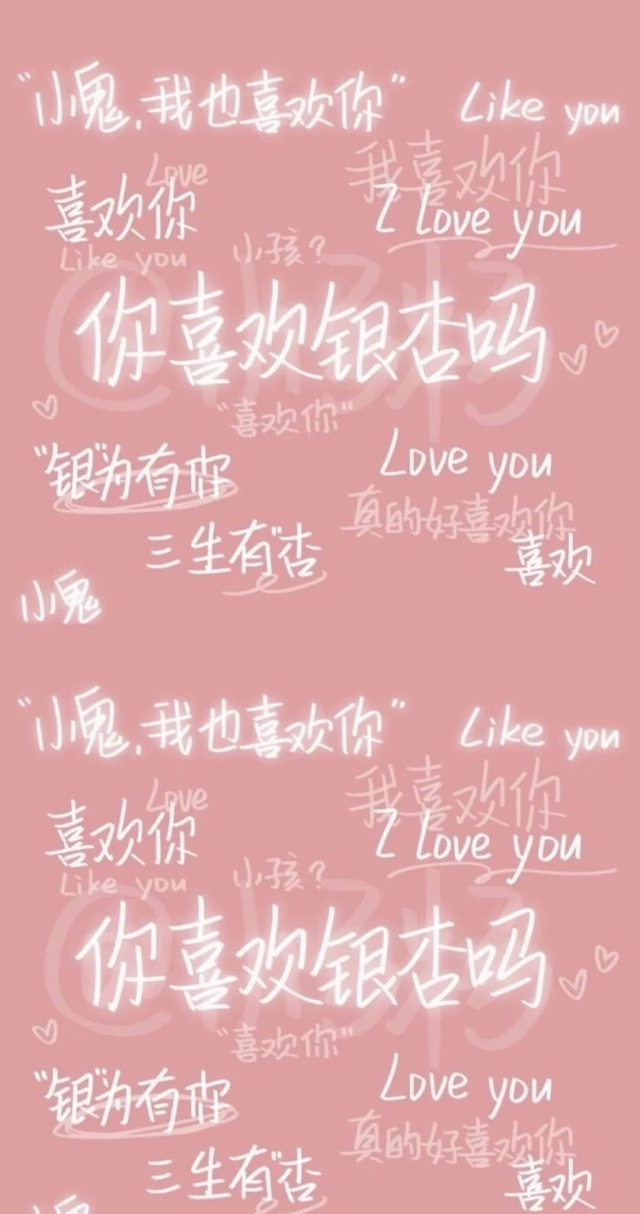 “小鬼,我也喜欢你” Like you
Love 我喜欢你
喜欢你 I Love you
Like you 小孩?
你喜欢银杏吗
“喜欢你”
“银”为有你 Love you
真的好喜欢你
三生有“杏 喜欢
小鬼
“小鬼,我也喜欢你” Like you
Love 我喜欢你
喜欢你 I Love you
Like you 小孩?
你喜欢银杏吗
“喜欢你”
“银”为有你 Love you
真的好喜欢你
三生有“杏 喜欢